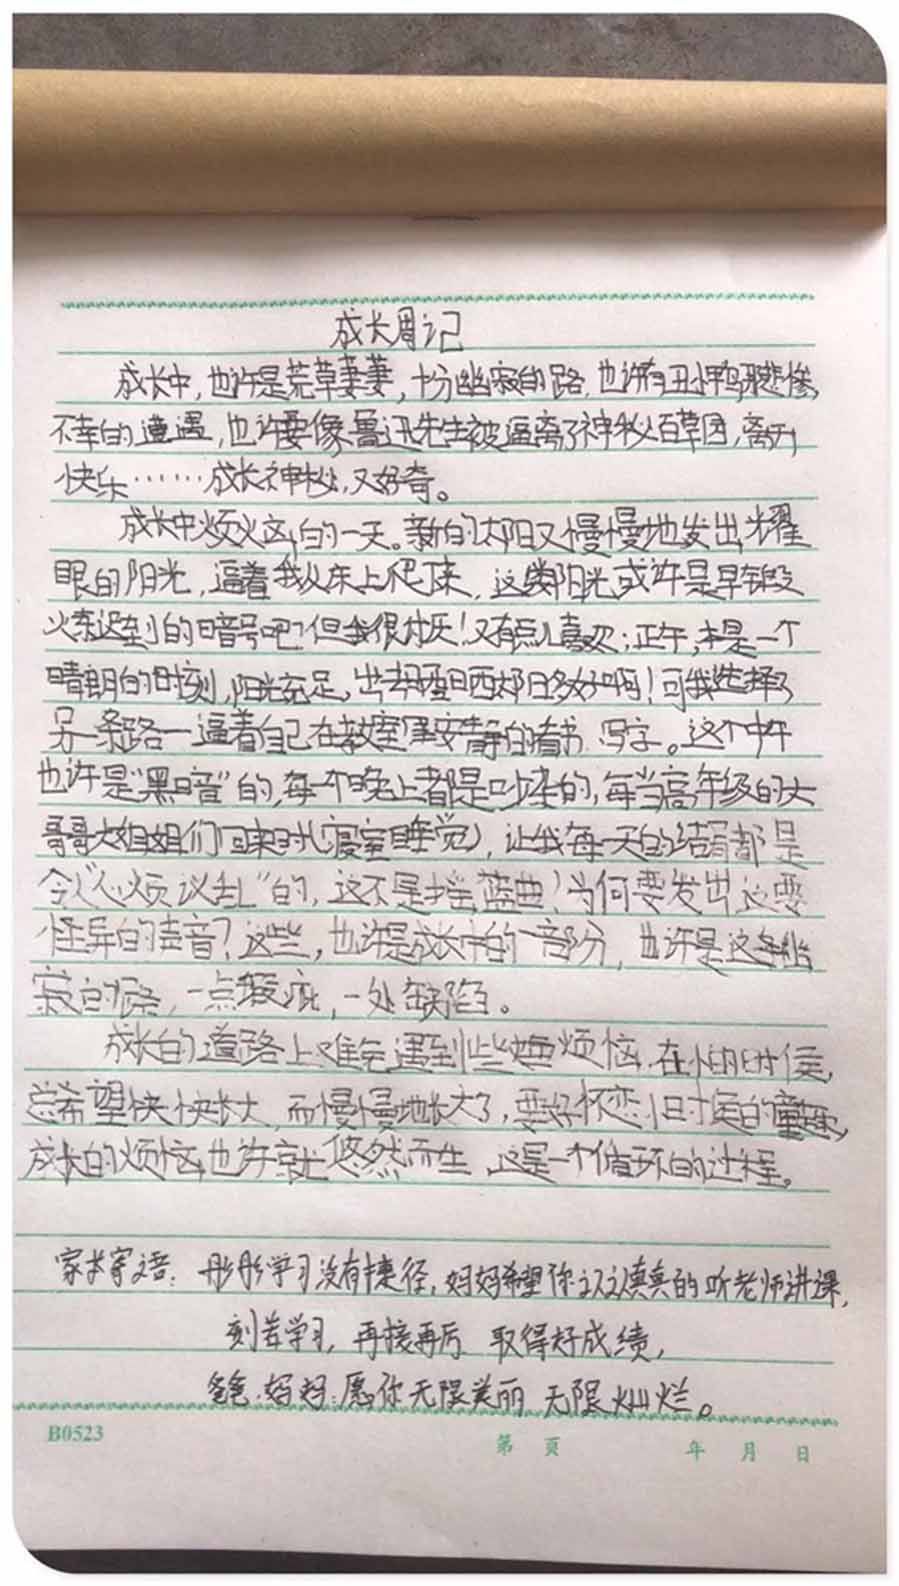 成长周记
成长中,也许是荒草萋萋,十分幽寂的路,也许有丑小鸭那悲惨
不幸的遭遇,也许要像鲁迅先生被逼离了神秘百草园,离开
快乐……成长神秘,又好奇。
成长中烦恼的一天。新的太阳又慢慢地发出耀
眼的阳光,逼着我从床上爬下来,这类阳光或许是早锻
炼迟到的暗号吧?但我很讨厌!又有点儿喜欢;正午,本是一个
晴朗的时刻,阳光充足,出去晒晒太阳多好啊!可我选择了
另一条路—逼着自己在教室里安静的看书 写字。这个中午
也许是"黑暗"的,每个晚上都是吵杂的,每当高年级的大
哥哥大姐姐们回来时(寝室睡觉),让我每一天的结局都是
令"心烦议乱"的,这不是摇蓝曲!为何要发出这要
怪异的声音?这些,也许是成长中的一部分,也许是这条幽
寂的路,一点瑕疵,一处缺陷。
成长的道路上难免遇到些烦恼,在小的时候,
总希望快快长大,而慢慢地长大了,要好怀恋旧时候的童趣,
成长的烦恼也许就悠然而生 这是一个循环的过程。
家长寄语:彤彤学习没有捷径,妈妈希望你认认真真的听老师讲课,
刻苦学习,再接再厉 取得好成绩,
爸爸.妈妈:愿你无限美丽 无限灿烂。
B0523
第 页 年 月 日